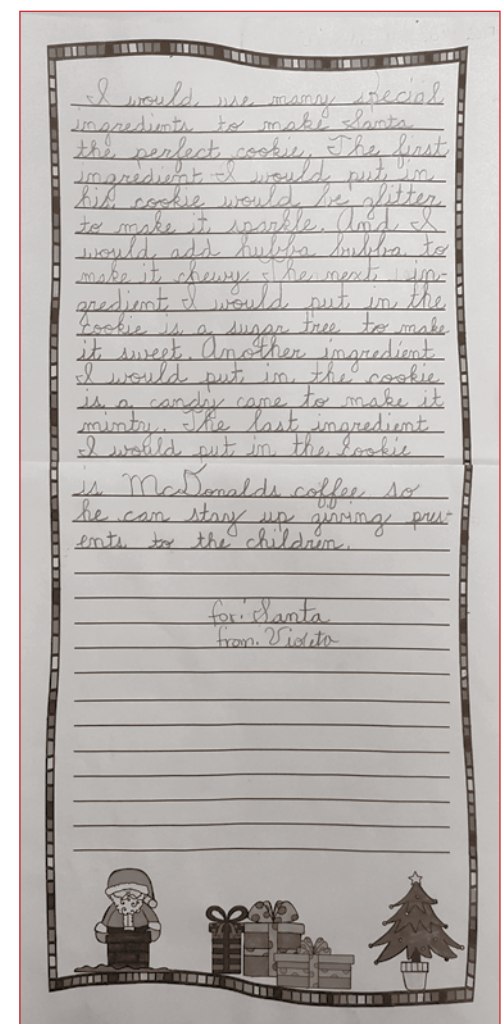 I would use many special
ingredients to make Santa
the perfect cookie. The first
ingredient I would put in
his cookie would be glitter
to make it sparkle. And I
would add hubba bubba to
make it chewy. The next in-
gredient I would put in the
cookie is a sugar tree to make
it sweet. Another ingredient
I would put in the cookie
is a candy cane to make it
minty. The last ingredient
I would put in the cookie
is McDonalds coffee so
he can stay up giving pres-
ents to the children.
for: Santa
from: Violeta